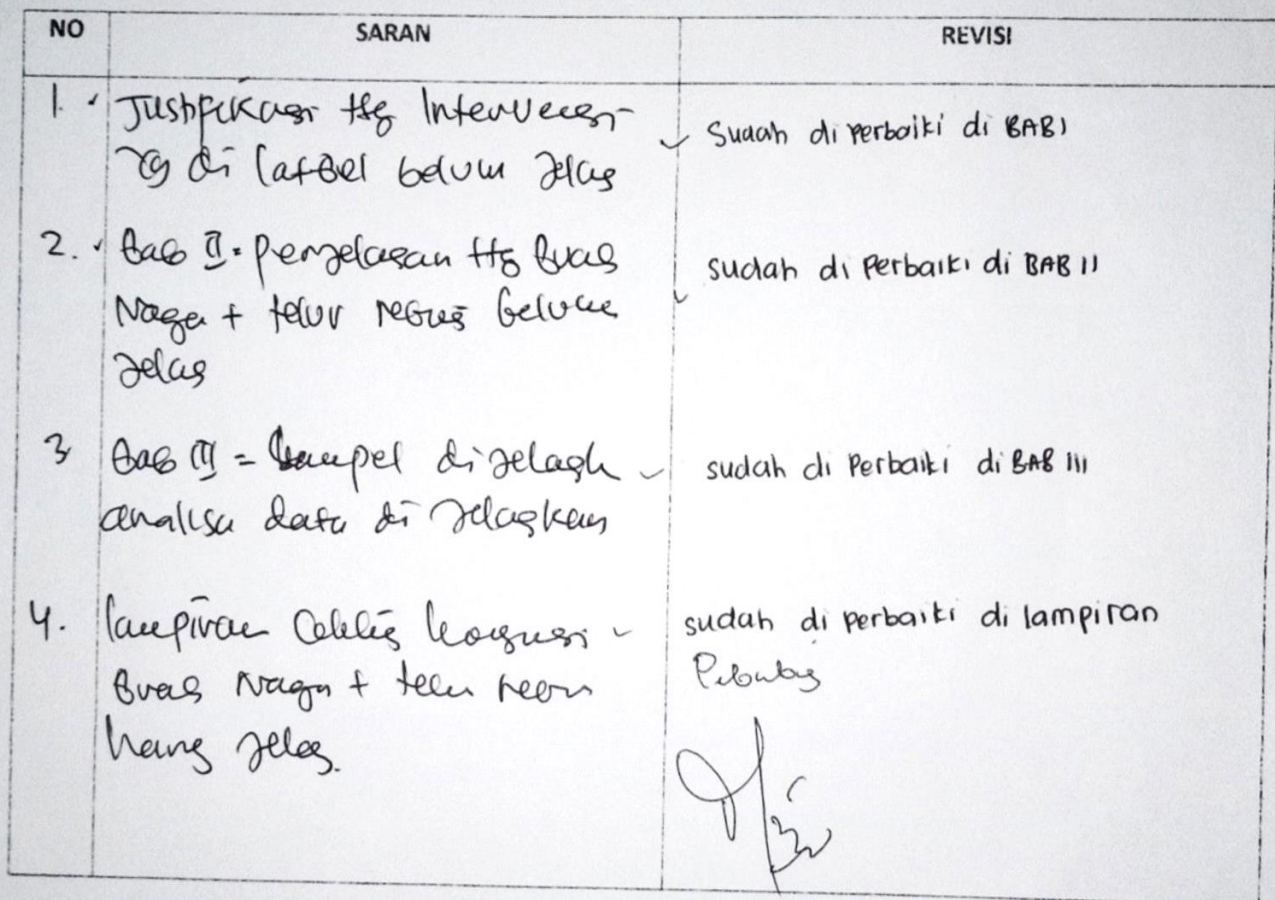 NO SARAN REVISI
1. Justifikasi ttg Intervensi
yg di latbel belum Jelas
✓ Sudah di perbaiki di BAB I
2. Bab II = penjelasan ttg Buah
Naga + telur rebus belum
Jelas
✓ sudah di Perbaiki di BAB II
3 Bab III = Sampel dijelask
analisa data di Jelaskan
✓ sudah di Perbaiki di BAB III
4. lampiran Ceklis konsumsi
Buah Naga + telur
harus jelas.
✓ sudah di perbaiki di lampiran